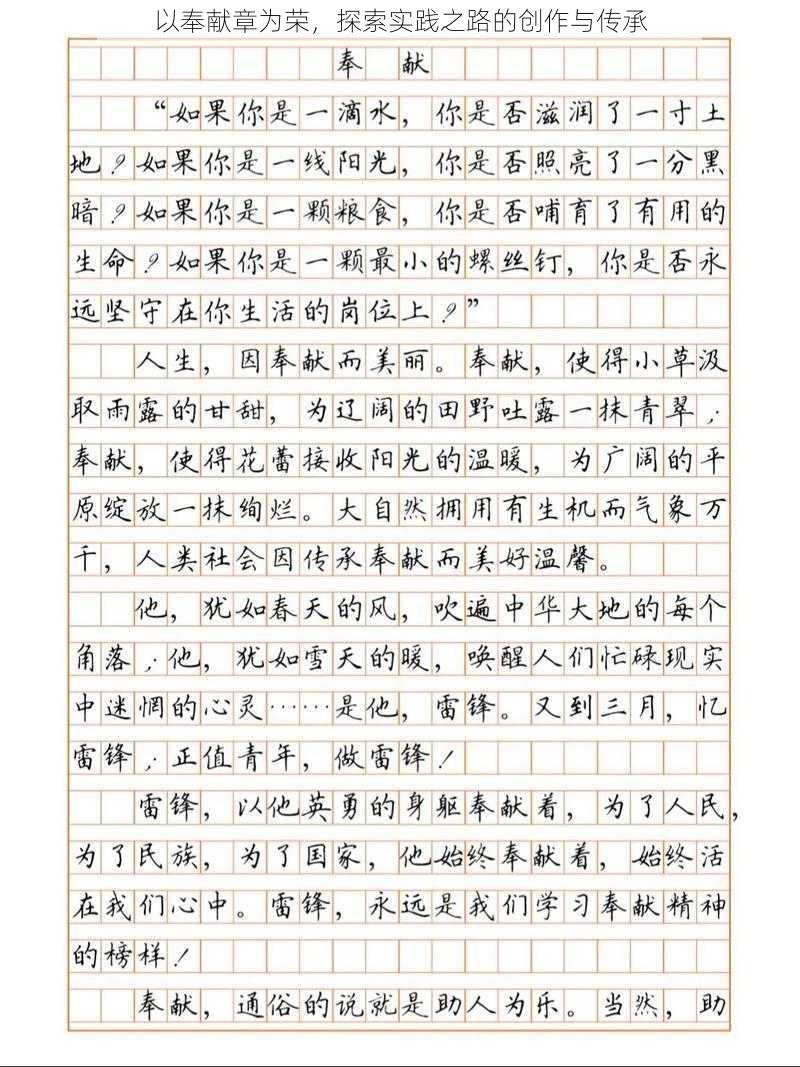 以奉献章为荣，探索实践之路的创作与传承
奉 献
“如果你是一滴水，你是否滋润了一寸土
地？如果你是一线阳光，你是否照亮了一分黑
暗？如果你是一颗粮食，你是否哺育了有用的
生命？如果你是一颗最小的螺丝钉，你是否永
远坚守在你生活的岗位上？”
人生，因奉献而美丽。奉献，使得小草汲
取雨露的甘甜，为辽阔的田野吐露一抹青翠；
奉献，使得花蕾接收阳光的温暖，为广阔的平
原绽放一抹绚烂。大自然拥用有生机而气象万
千，人类社会因传承奉献而美好温馨。
他，犹如春天的风，吹遍中华大地的每个
角落；他，犹如雪天的暖，唤醒人们忙碌现实
中迷惘的心灵……是他，雷锋。又到三月，忆
雷锋；正值青年，做雷锋！
雷锋，以他英勇的身躯奉献着，为了人民，
为了民族，为了国家，他始终奉献着，始终活
在我们心中。雷锋，永远是我们学习奉献精神
的榜样！
奉献，通俗的说就是助人为乐。当然，助